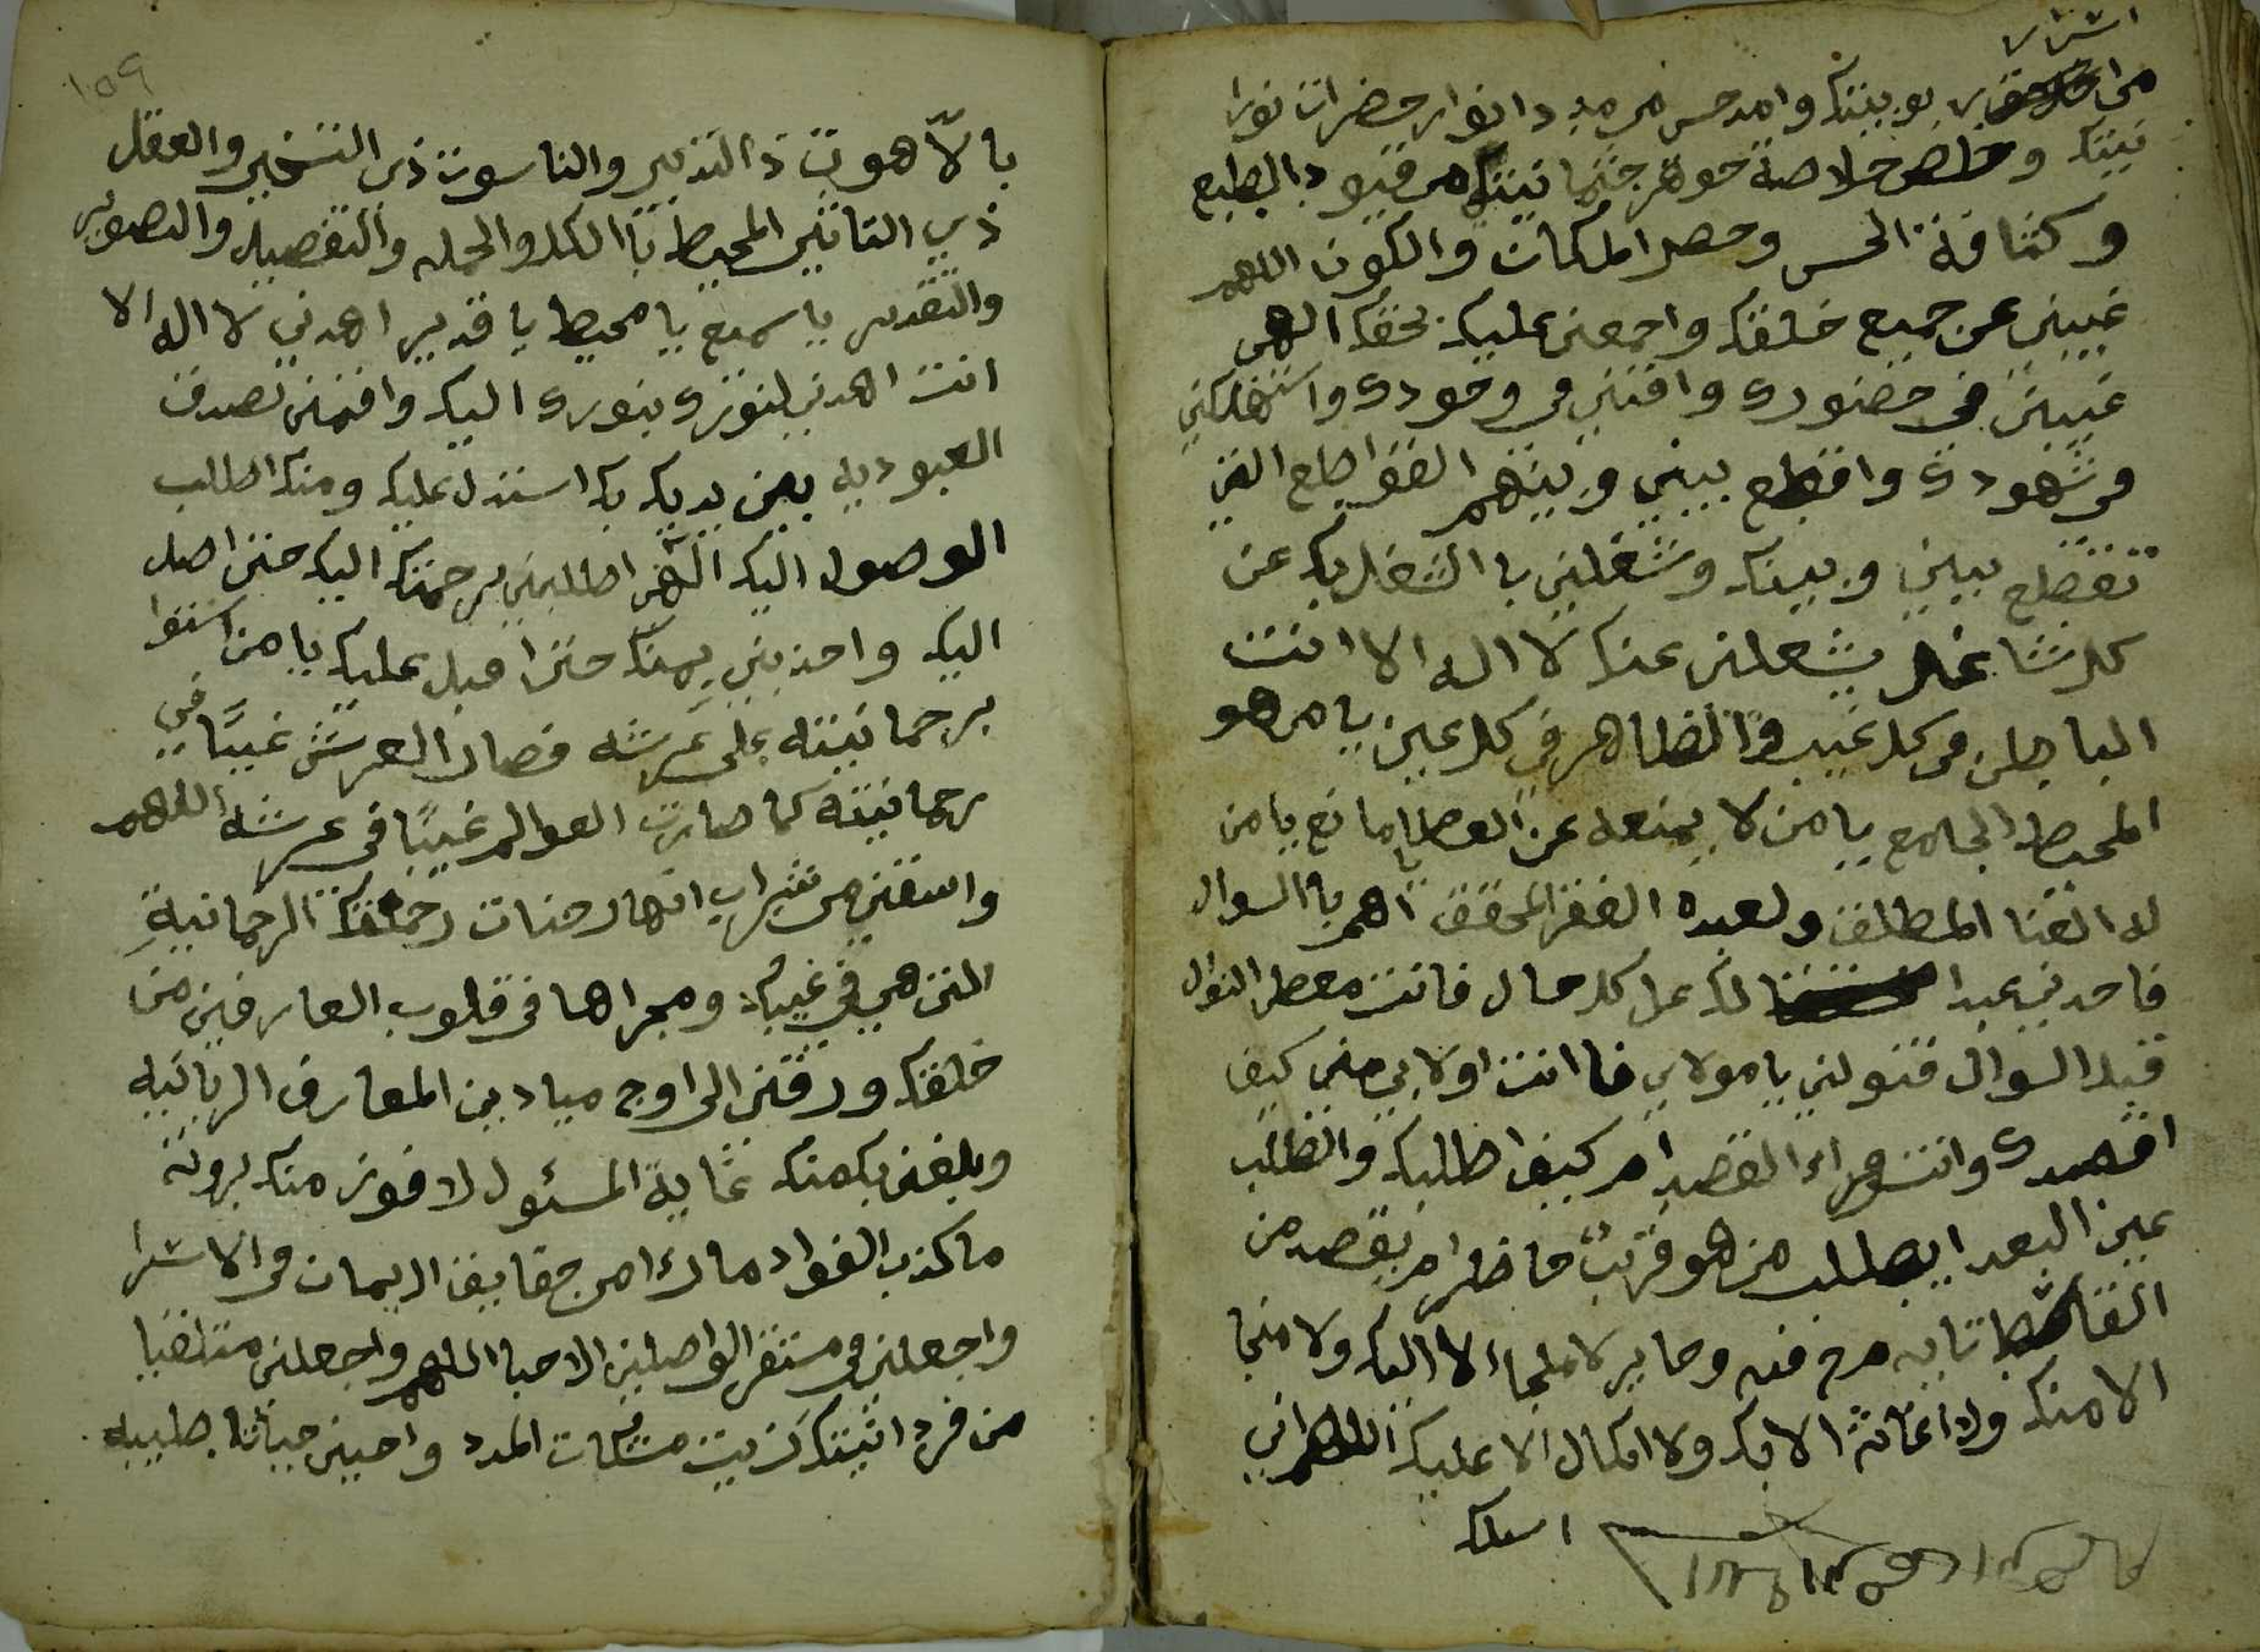 اشرار
من ربوبيتك وامدحس من مدد انوار حضرات نورا
نيتك وخلص خلاصة جوهر جثمانيتك من قيود الطبع
وكثافة الحس وحصر المكان والكون اللهم
غيبني عن جميع خلقك واجمعني عليك بحقك الهي
غيبني في حضوري وافنني في وجودي واستهلكني
في شهودي واقطع بيني وبينهم القواطع التي
تقطع بيني وبينك وشغلني با الشغل بك عن
كل شاغل يشغلني عنك لا اله الا انت
الباطن في كل غيب والظاهر في كل عين يا من هو
المحيط الجامع يا من لا يمنعه عن العطايا مانع يا من
له الغنا المطلق ولعبده الفقر المحقق اهم با السوال
فاجدني عبدا لك على كل حال فانت معطي النوال
قبل السوال فتولني يا مولاي فا انت اولا بي مني كيف
اقصدك وانت وراء القصد ام كيف اطلبك والطلب
عين البعد ايطلب من هو قريب حاضر ام يقصد من
القاصد تايه فيه وحاير لا ملجاء الا اليك ولا منجا
الا منك ولا اغاثة الا بك ولا اتكال الا عليك اللهم اني
اسلك
١٥٩
با لّاهوت ذا التدبير والناسوت ذي التسخير والعقل
ذي التاثير المحيط با الكل والجمله والتفصيل والتصوير
والتقدير يا سميع يا محيط يا قدير اهدني لا اله الا
انت اهدني لنورك بنورك اليك واقمني بصدق
العبوديه بين يديك بك استدل عليك ومنك اطلب
الوصول اليك الهي اطلبني برحمتك اليك حتى اصل
اليك واجذبني بمنك حتى اقبل عليك يا من استوا
برحمانيته على عرشه فصار العرش غيبًا في
رحمانيته كما صارت العوالم غيبًا في عرشه اللهم
واسقني من شراب انهار جنات رحمتك الرحمانية
التي هي في غيبك ومجراها في قلوب العارفين من
خلقك ورقني الى اوج ميادين المعارف الربانيه
وبلغني بك منك غاية المسئول لا فوز منك برؤية
ما كذب الفواد ما راا من حقايق الايمان في الاسرا
واجعلني في مستقر الواصلين الاحبا اللهم واجعلني متلقيا
من فردانيتك زيت مشكات المدد واحيني حياتا طيبه